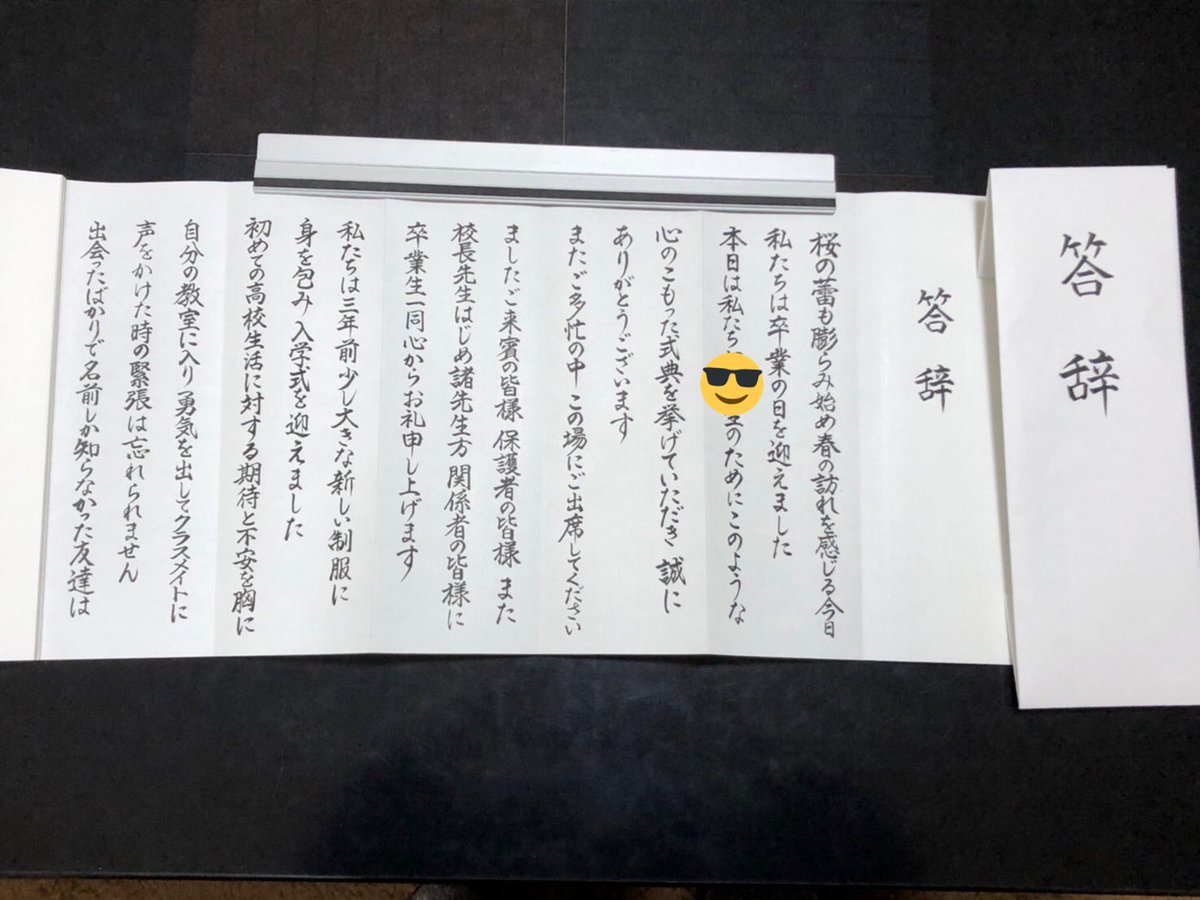 答辞
答辞
桜の蕾も膨らみ始め春の訪れを感じる今日
私たちは卒業の日を迎えました
本日は私たち のためにこのような
心のこもった式典を挙げていただき 誠に
ありがとうございます
またご多忙の中 この場にご出席してください
ましたご来賓の皆様 保護者の皆様 また
校長先生はじめ諸先生方 関係者の皆様に
卒業生一同心からお礼申し上げます
私たちは三年前少し大きな新しい制服に
身を包み 入学式を迎えました
初めての高校生活に対する期待と不安を胸に
自分の教室に入り 勇気を出してクラスメイトに
声をかけた時の緊張は忘れられません
出会ったばかりで名前しか知らなかった友達は